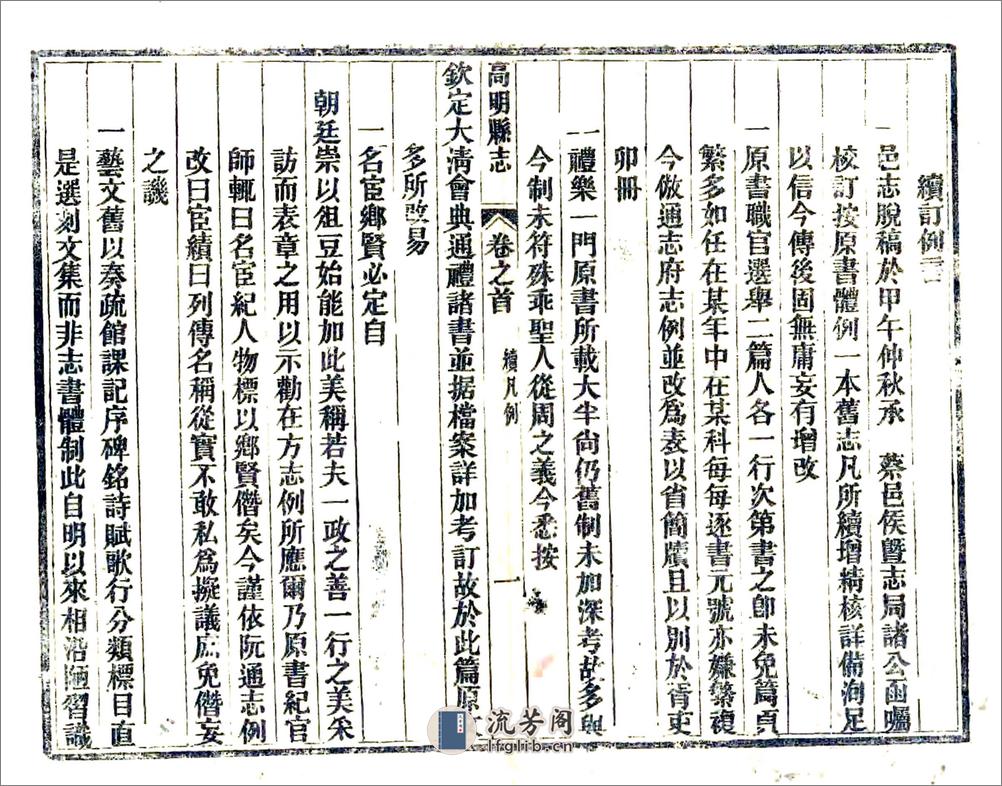 續訂例言
一邑志脫稿於甲午仲秋承　蔡邑侯曁志局諸公函囑
校訂按原書體例一本舊志凡所續增精核詳備洵足
以信今傳後固無庸妄有增改
一原書職官選舉二篇人各一行次第書之卽未免篇頁
繁多如任在某年中在某科每每逐書元號亦嫌繁複
今倣通志府志例並改爲表以省簡牘且以別於胥吏
卯冊
一禮樂一門原書所載大半尙仍舊制未加深考故多與
今制未符殊乖聖人從周之義今悉按
高明縣志　卷之首　續凡例　一
欽定大淸會典通禮諸書並据檔案詳加考訂故於此篇原文
多所改易
一名宦鄉賢必定自
朝廷崇以俎豆始能加此美稱若夫一政之善一行之美采
訪而表章之用以示勸在方志例所應爾乃原書紀官
師輒曰名宦紀人物標以鄉賢僭矣今謹依阮通志例
改曰宦績曰列傳名稱從實不敢私爲擬議庶免僭妄
之譏
一藝文舊以奏疏館課記序碑銘詩賦歌行分類標目直
是選刻文集而非志書體制此自明以來相沿陋習識
流芳阁
lfglib.cn